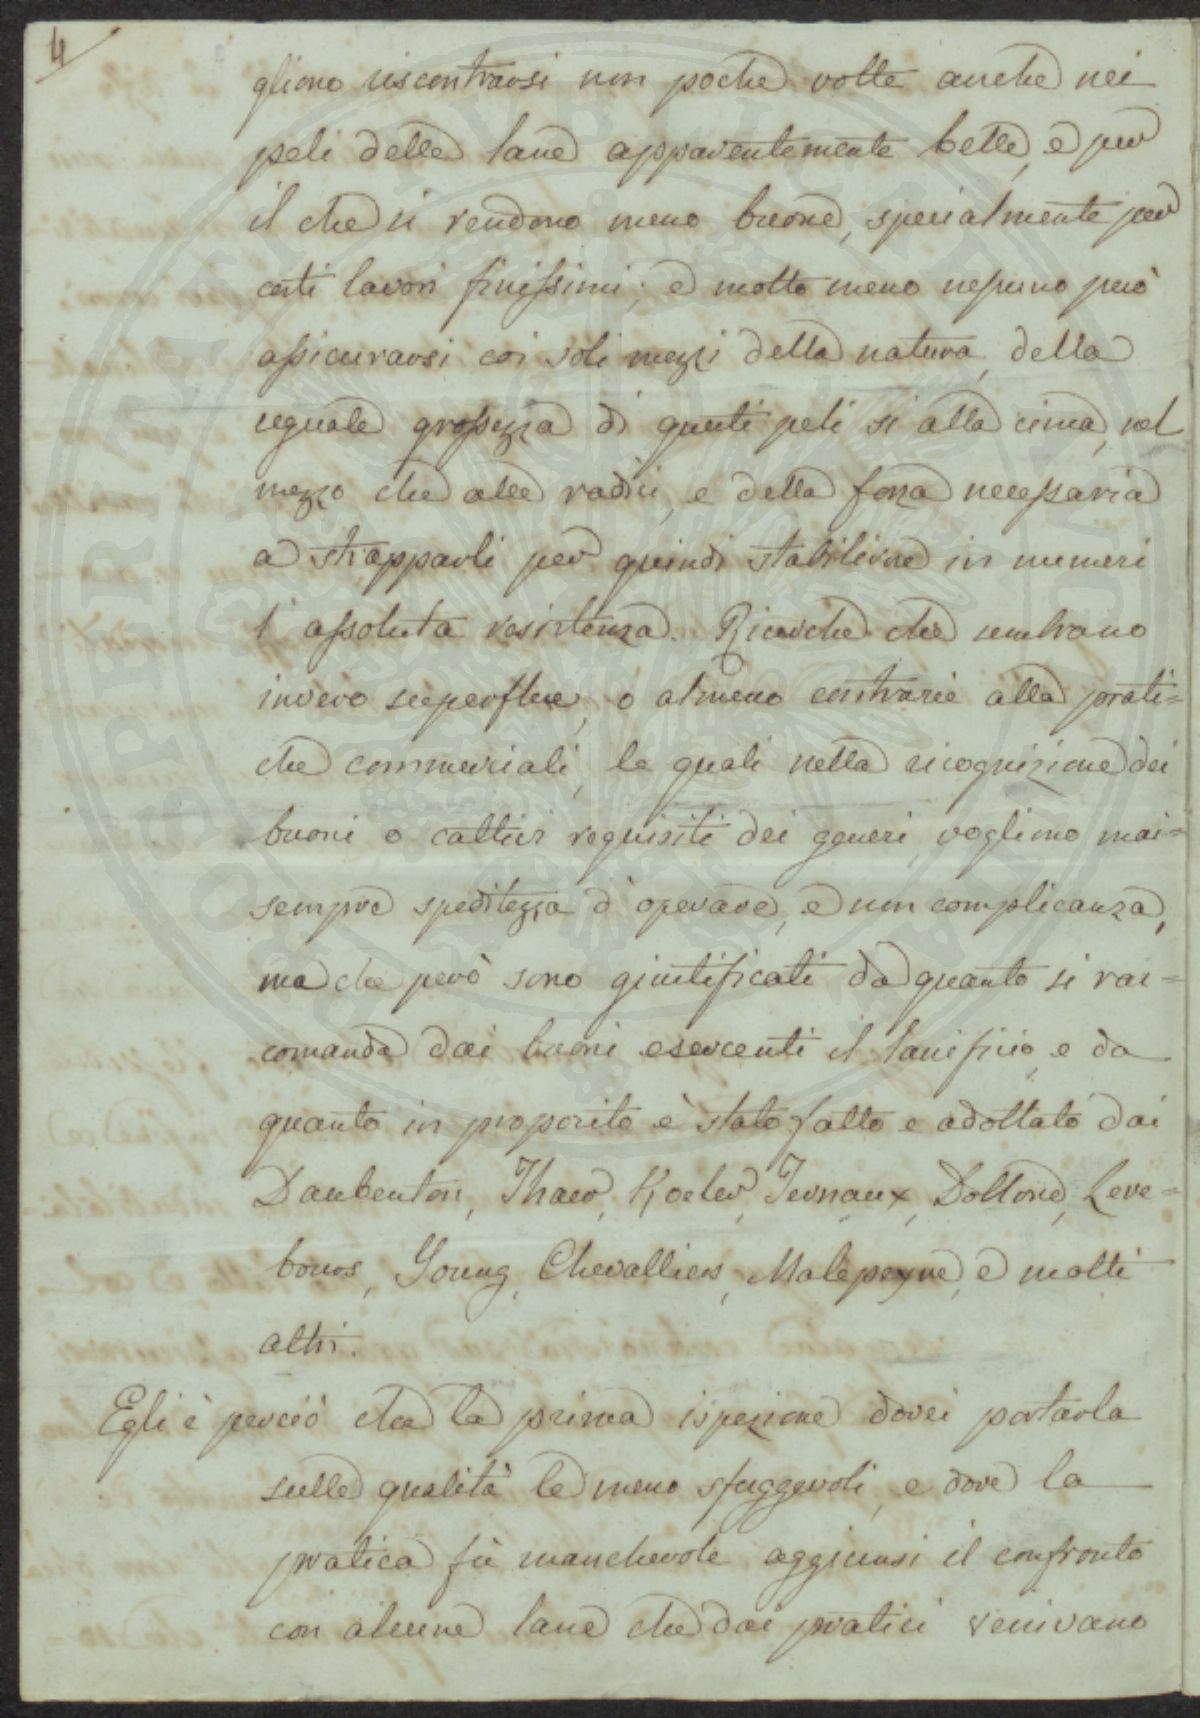 4
gliono riscontrarsi non poche volte anche nei
peli delle lane apparentemente belle, e per
il che si rendono meno buone, specialmente per
certi lavori finissimi; e molto meno nessuno può
assicurarsi coi soli mezzi della natura, della
uguale grossezza di questi peli si alla cima, nel
mezzo che alle radici, e della forza necessaria
a strapparli per quindi stabilirne in numeri
l'assoluta resistenza. Ricerche che sembrano
invero superflue, o almeno contrarie alla prati=
che commerciali, le quali nella ricognizione dei
buoni o cattivi requisiti dei generi, vogliono mai=
sempre speditezza d'operare, e non complicanza,
ma che però sono giustificati da quanto si rac=
comanda dai buoni esercenti il lanificio, e da
quanto in proposito è stato fatto e adottato dai
Daubenton, Thaer, Koeler, Ternaux, Dollond, Lere=
bours, Young, Chevalliers, Malepeyre, e molti
altri.
Egli è perciò che la prima ispezione dovei portarla
sulle qualità le meno sfuggevoli, e dove la
pratica fù manchevole aggiunsi il confronto
con alcune lane che dai pratici venivano
SOSPERITATI PUBLICAE AUGENDAE